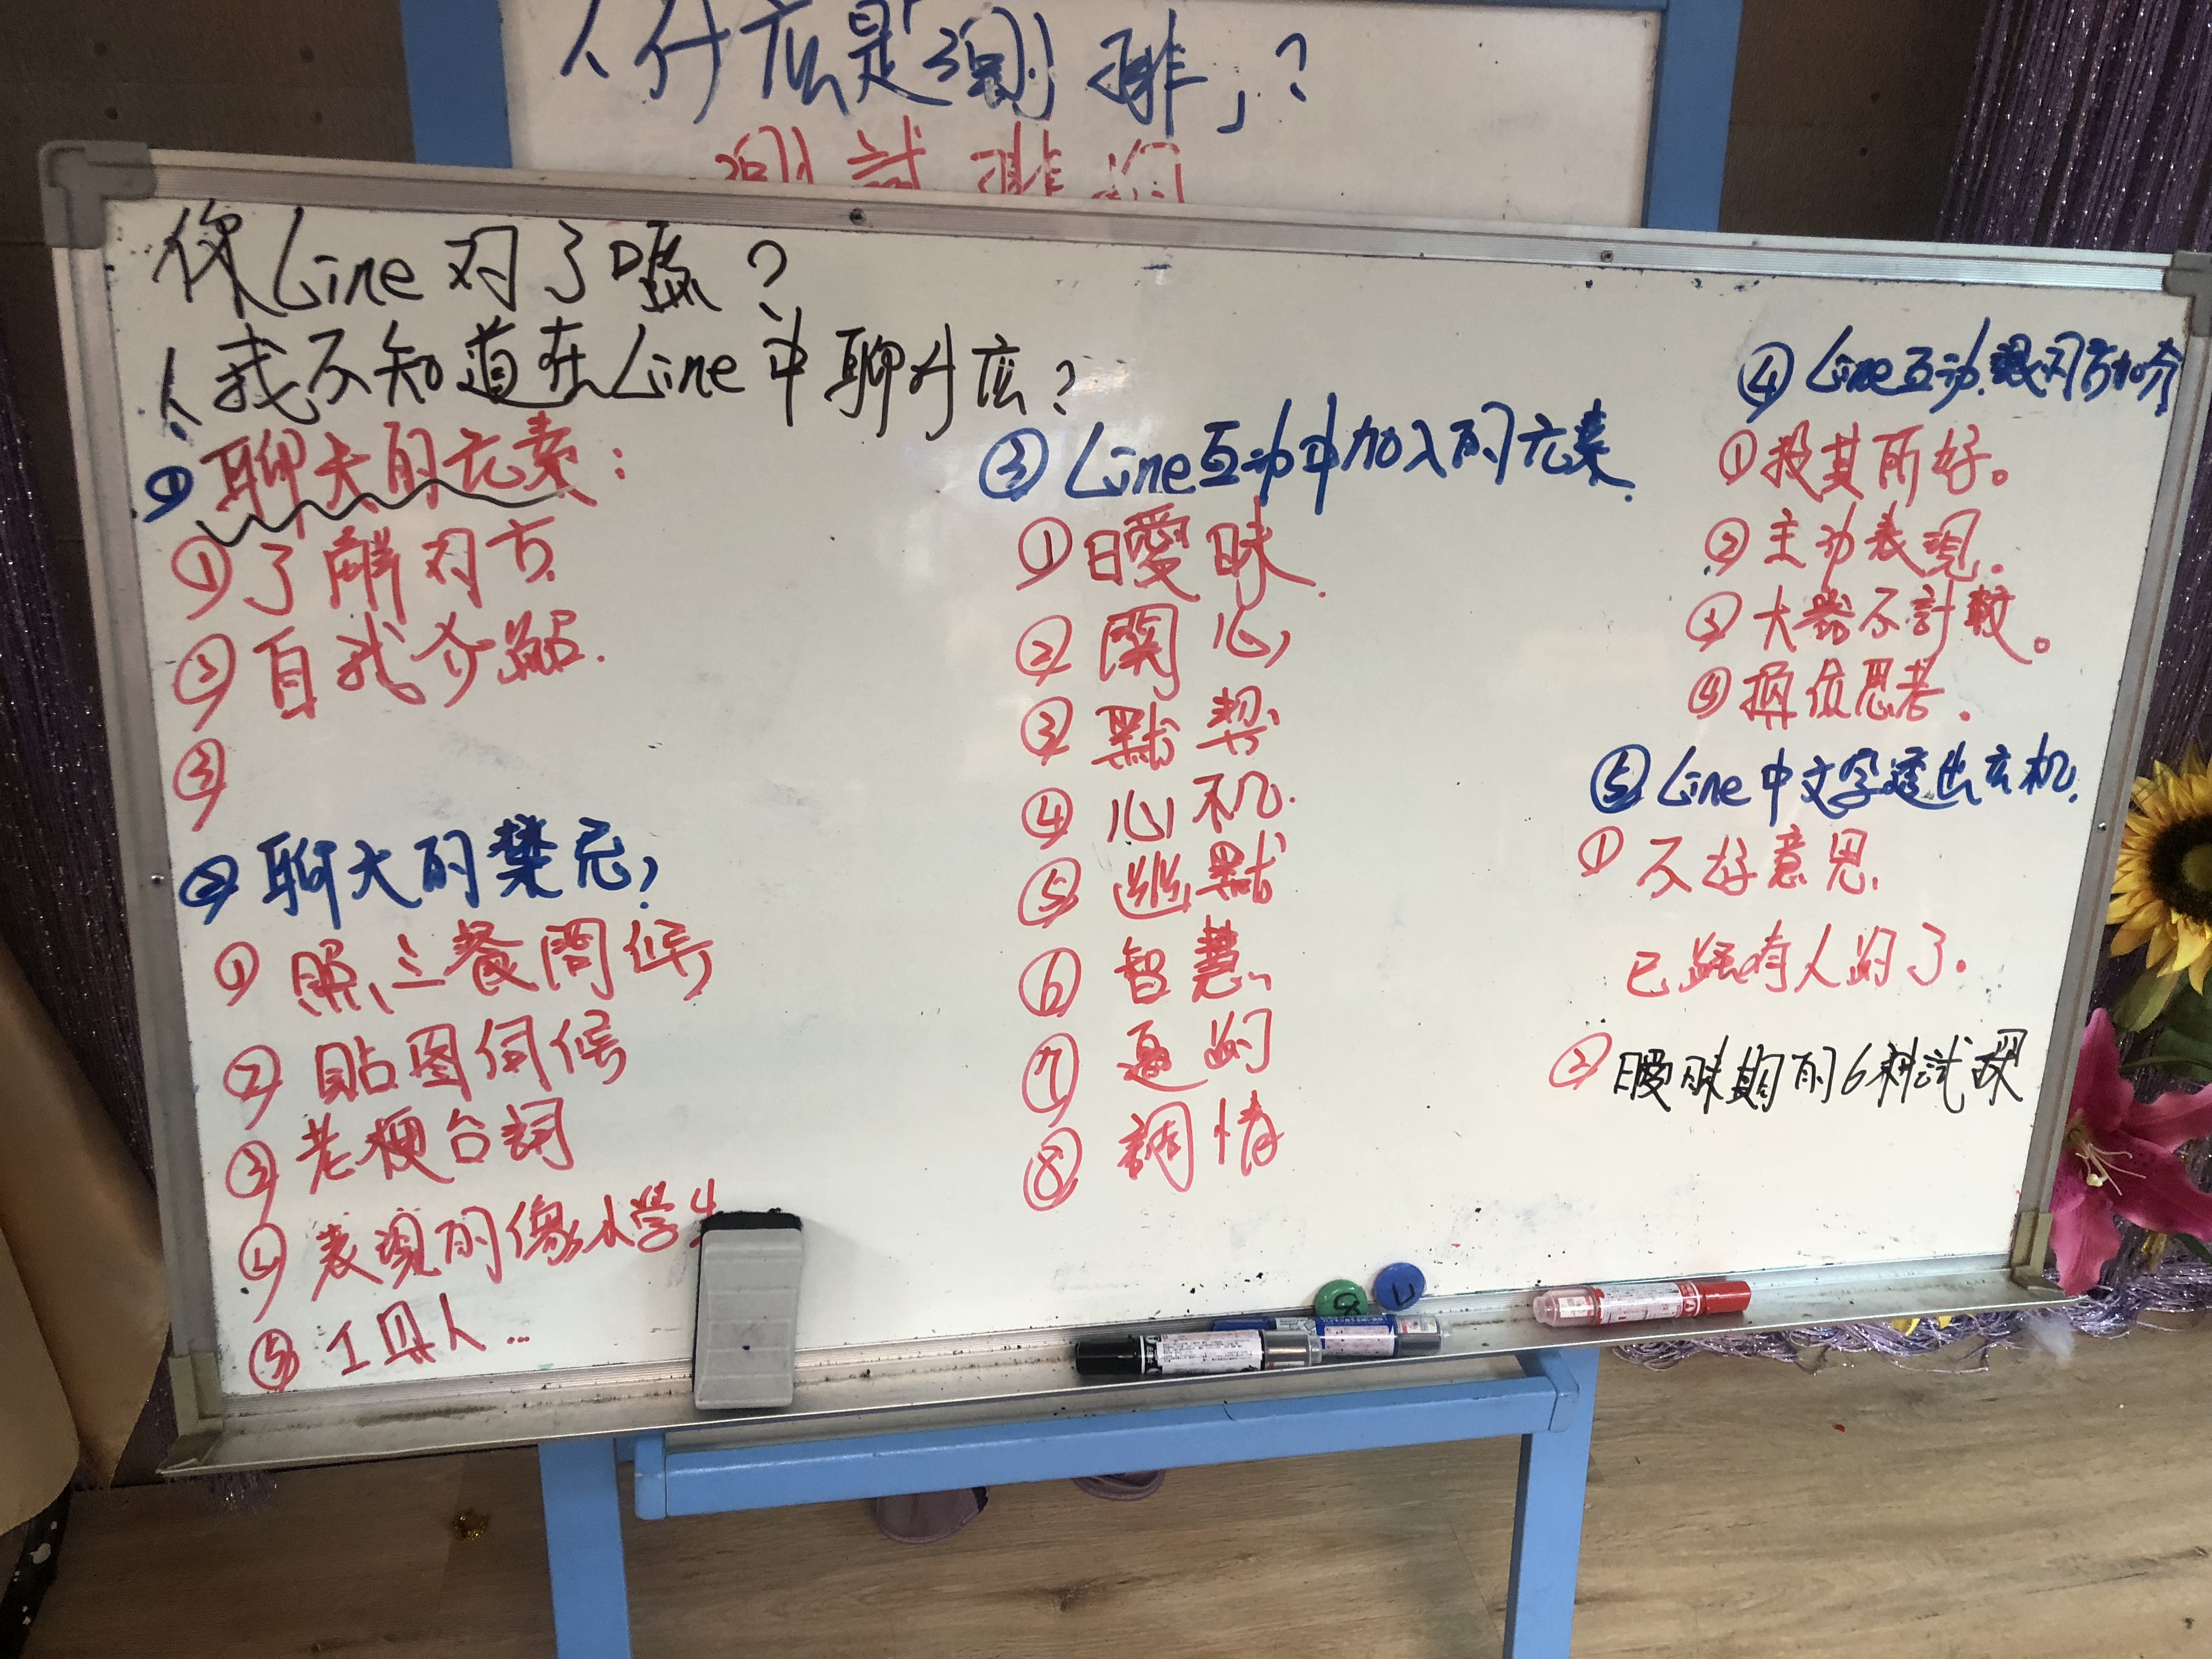 什庅是「測排」?
測試排約
你Line对了嗎?
(我不知道在Line中聊什庅?
① 聊天的元素:
① 了解对方.
② 自我介紹.
③
② 聊天的禁忌,
① 照三餐問候
② 貼图伺候
③ 老梗台詞
④ 表現的像小學生
⑤ 工具人...
③ Line互动中加入的元素.
① 曖昧.
② 関心,
③ 默契
④ 心机.
⑤ 幽默
⑥ 智慧
⑦ 邀約
⑧ 調情
④ Line互动讓对方加分
① 投其所好。
② 主动表現.
③ 大器不計較。
④ 換位思考.
⑤ Line中文字透出玄机.
① 不好意思.
已經有人約了。
② 曖昧期的6种試探